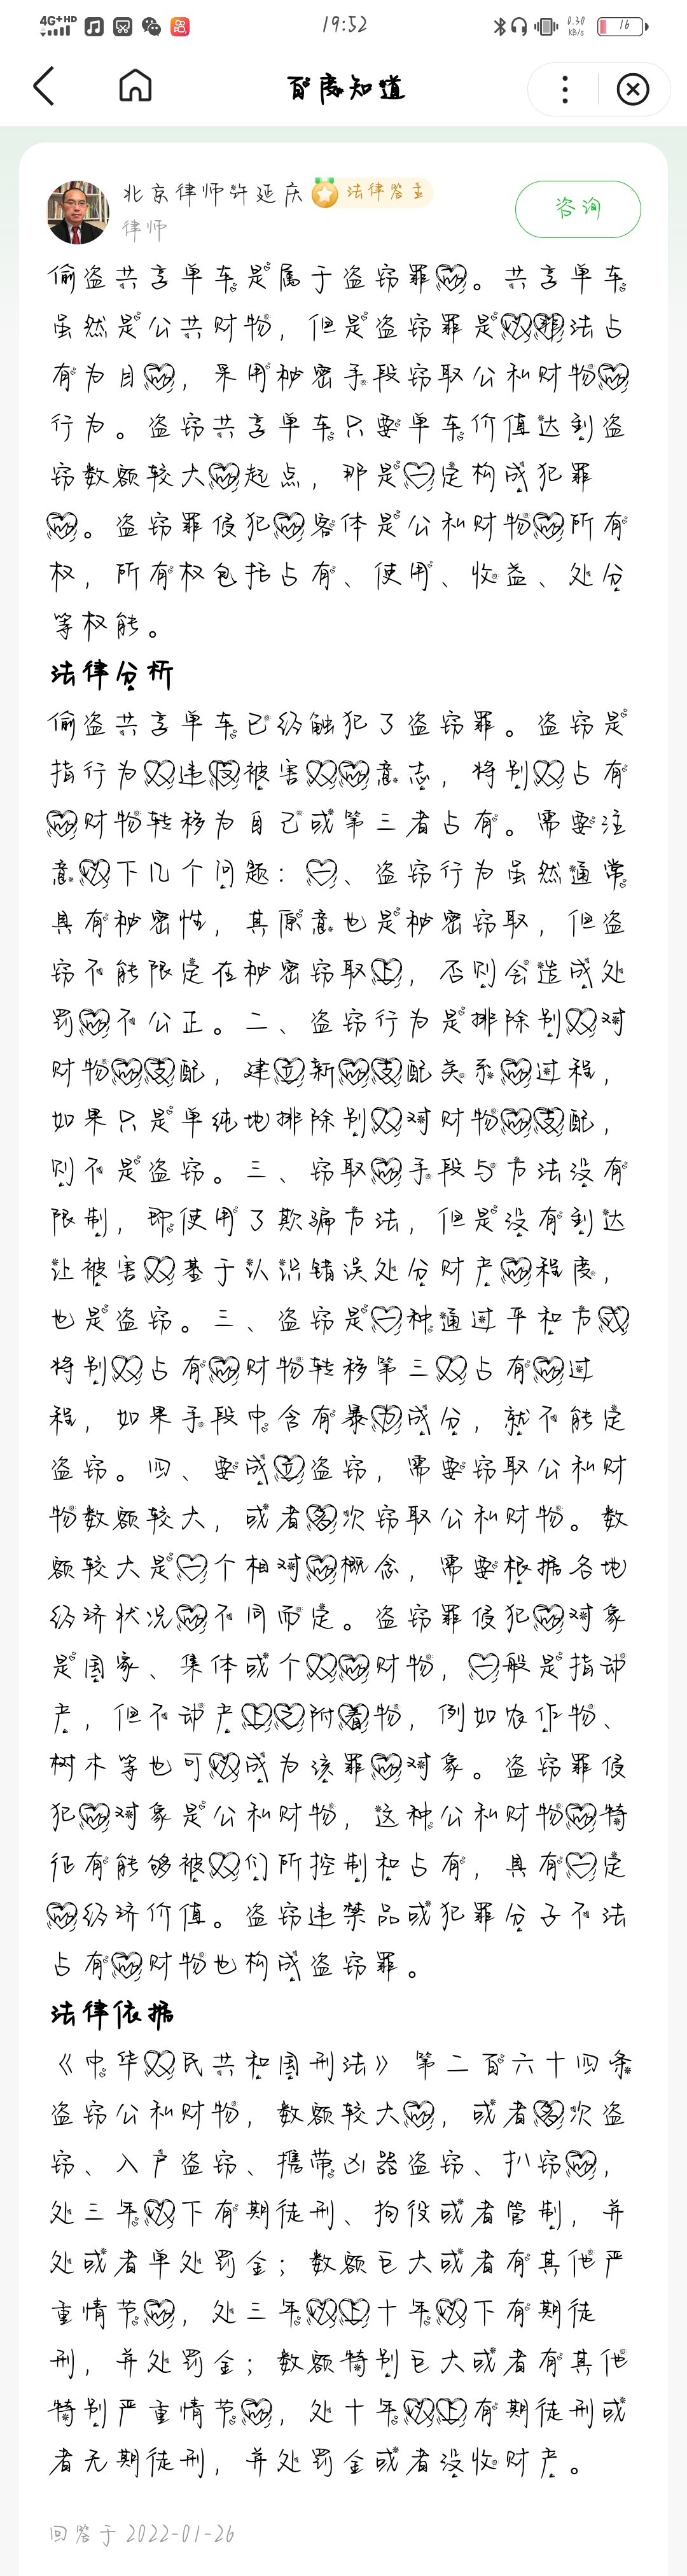 4G+HD 19:52 0.30 KB/s 16
百度知道
北京律师许延庆 法律答主
律师
咨询
偷盗共享单车是属于盗窃罪的。共享单车
虽然是公共财物，但是盗窃罪是以非法占
有为目的，采用秘密手段窃取公私财物的
行为。盗窃共享单车只要单车价值达到盗
窃数额较大的起点，那是一定构成犯罪
的。盗窃罪侵犯的客体是公私财物的所有
权，所有权包括占有、使用、收益、处分
等权能。
法律分析
偷盗共享单车已经触犯了盗窃罪。盗窃是
指行为人违反被害人的意志，将别人占有
的财物转移为自己或第三者占有。需要注
意以下几个问题：一、盗窃行为虽然通常
具有秘密性，其原意也是秘密窃取，但盗
窃不能限定在秘密窃取上，否则会造成处
罚的不公正。二、盗窃行为是排除别人对
财物的支配，建立新的支配关系的过程，
如果只是单纯地排除别人对财物的支配，
则不是盗窃。三、窃取的手段与方法没有
限制，即使用了欺骗方法，但是没有到达
让被害人基于认识错误处分财产的程度，
也是盗窃。三、盗窃是一种通过平和方式
将别人占有的财物转移第三人占有的过
程，如果手段中含有暴力成分，就不能定
盗窃。四、要成立盗窃，需要窃取公私财
物数额较大，或者多次窃取公私财物。数
额较大是一个相对的概念，需要根据各地
经济状况的不同而定。盗窃罪侵犯的对象
是国家、集体或个人的财物，一般是指动
产，但不动产上之附着物，例如农作物、
树木等也可以成为该罪的对象。盗窃罪侵
犯的对象是公私财物，这种公私财物的特
征有能够被人们所控制和占有，具有一定
的经济价值。盗窃违禁品或犯罪分子不法
占有的财物也构成盗窃罪。
法律依据
《中华人民共和国刑法》第二百六十四条
盗窃公私财物，数额较大的，或者多次盗
窃、入户盗窃、携带凶器盗窃、扒窃的，
处三年以下有期徒刑、拘役或者管制，并
处或者单处罚金；数额巨大或者有其他严
重情节的，处三年以上十年以下有期徒
刑，并处罚金；数额特别巨大或者有其他
特别严重情节的，处十年以上有期徒刑或
者无期徒刑，并处罚金或者没收财产。
回答于 2022-01-26